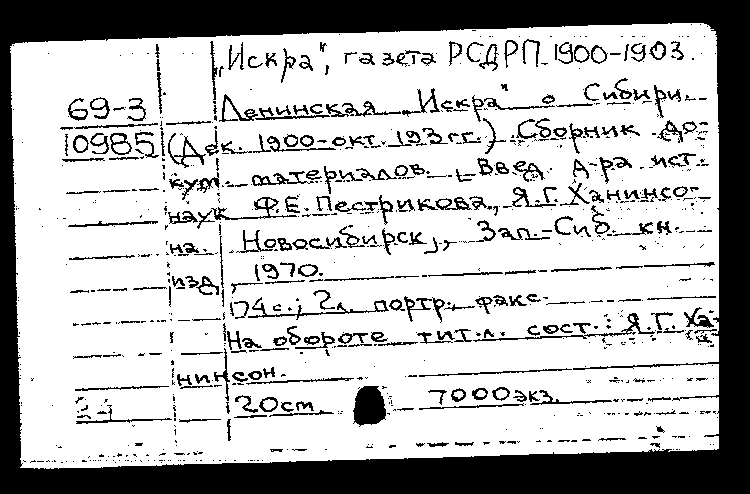 „Искра", газета РСДРП. 1900-1903.
69-3 Ленинская „Искра" о Сибири.
10985 (Дек. 1900-окт. 193гг.) Сборник до-
кум. материалов. [Введ. д-ра ист.
наук Ф.Е. Пестрикова, Я.Г. Ханинсо-
на. Новосибирск], Зап.-Сиб. кн.
изд, 1970.
174с.; 2л. портр., факс.
На обороте тит.л. сост.: Я.Г. Ха-
нинсон.
20см. 7000экз.